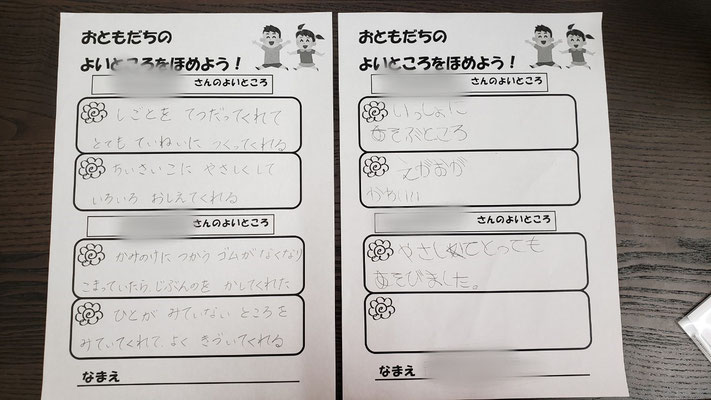 おともだちの
よいところをほめよう！
さんのよいところ
しごとを てつだってくれて
とても ていねいに つくってくれる
ちいさいこに やさしくして
いろいろ おしえてくれる
さんのよいところ
かみのけに つかう ゴムが なくなり
こまっていたら、じぶんのを かしてくれた
ひとが みていない ところを
みていてくれて、よく きづいてくれる
なまえ
おともだちの
よいところをほめよう！
さんのよいところ
いっしょに
あそぶところ
えがおが
かわいい
さんのよいところ
やさしくてとっても
あそびました。
なまえ